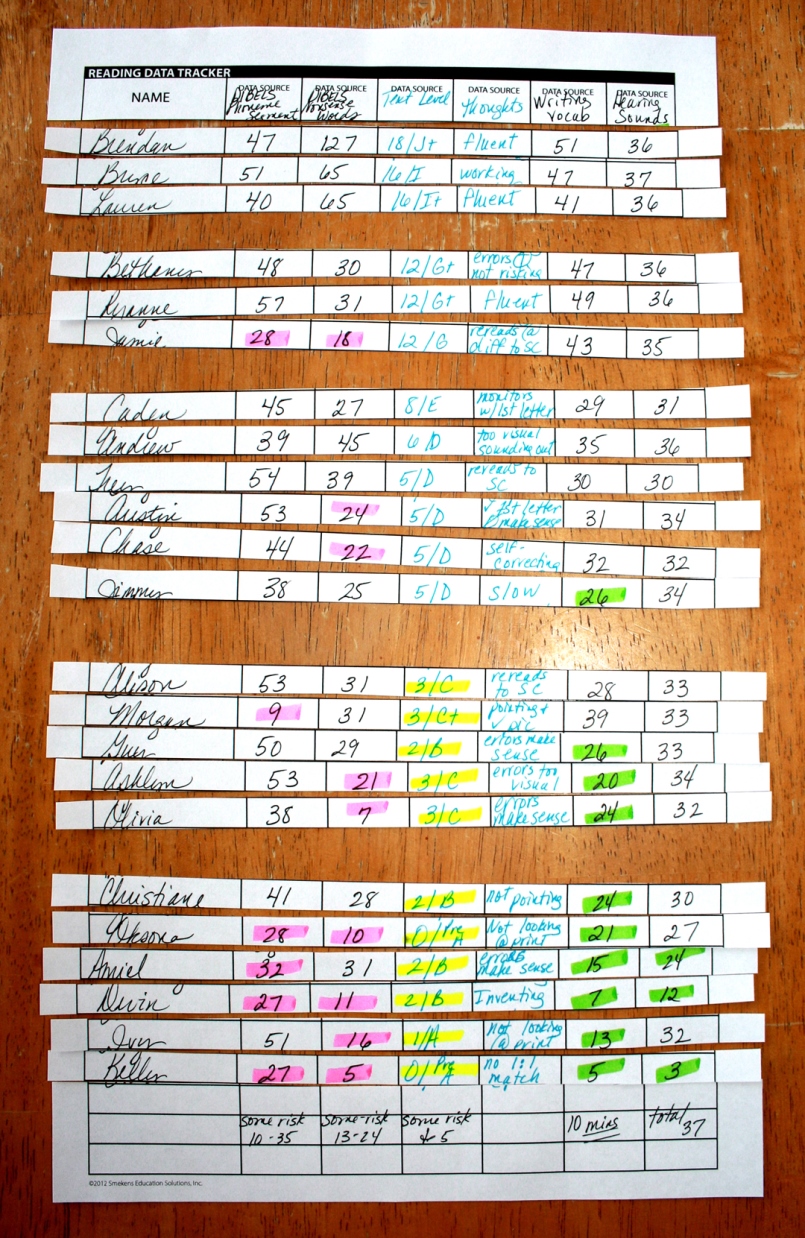 READING DATA TRACKER
NAME DATA SOURCE DATA SOURCE DATA SOURCE DATA SOURCE DATA SOURCE DATA SOURCE
DIBELS Phoneme Segment DIBELS Nonsense Words Text Level Thoughts Writing Vocab Hearing Sounds
Brendan 47 127 18/J+ fluent 51 36
51 65 16/I working 47 37
Lauren 40 65 16/I+ fluent 41 36
Bethany 48 30 12/G+ errors not risking 47 36
57 31 12/G+ fluent 49 36
Jamie 28 18 12/G rereads @ diff to SC 43 35
Caden 45 27 8/E monitors w/1st letter 29 31
Andrew 39 45 6/D too visual sounding out 35 36
54 39 5/D rereads to SC 30 30
Austin 53 24 5/D ✓ 1st letter make sense 31 34
Chase 44 22 5/D self-correcting 32 32
Jimmy 38 25 5/D slow 26 34
Alison 53 31 3/C rereads to SC 28 33
Morgan 9 31 3/C+ pointing + ✓ pic 39 33
50 29 2/B errors make sense 26 33
Ashlyn 53 21 3/C errors too visual 20 34
Olivia 38 7 3/C errors make sense 24 32
Christiane 41 28 2/B not pointing 24 30
28 10 0/Pre A Not looking @ print 21 27
Amiel 32 31 2/B errors make sense 15 24
Devin 27 11 2/B Inventing 7 12
Ivy 51 16 1/A not looking @ print 13 32
27 5 0/Pre A no 1:1 match 5 3
some risk 10-35 some risk 13-24 some risk 5 10 mins total 37
©2012 Smekens Education Solutions, Inc.